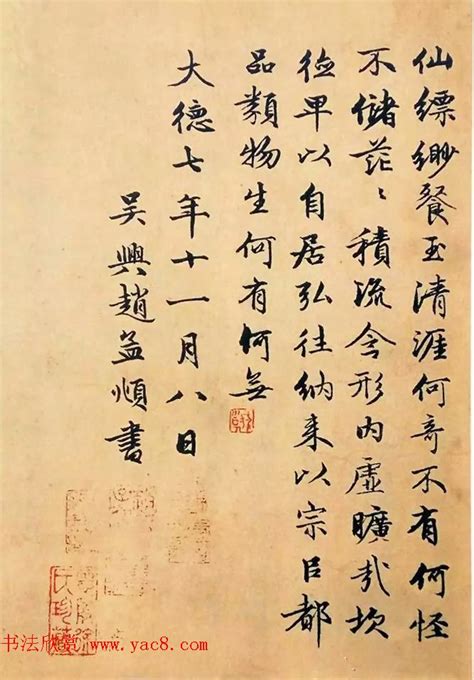 仙縹緲餐玉清涯何奇不有何怪
不儲茫〻積流含形内虛曠哉坎
德卑以自居弘往納来以宗㠯都
品類物生何有何無
大德七年十一月八日
吴興趙孟頫書
书法欣赏 www.yac8.com